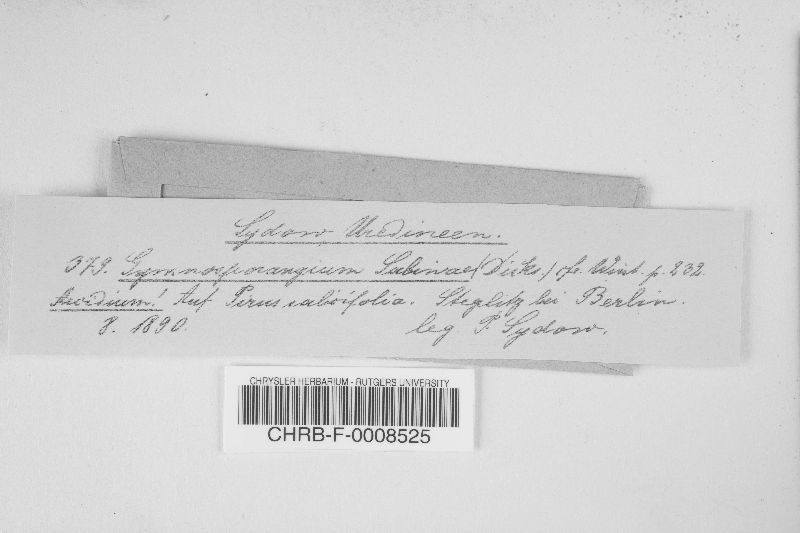 Sydow Uredineen.
379. Gymnosporangium Sabinae (Dicks.) cfr. Wint. p. 232.
Aecidium! Auf Pirus salicifolia. Steglitz bei Berlin.
8. 1890. leg. P. Sydow.
CHRYSLER HERBARIUM - RUTGERS UNIVERSITY
CHRB-F-0008525